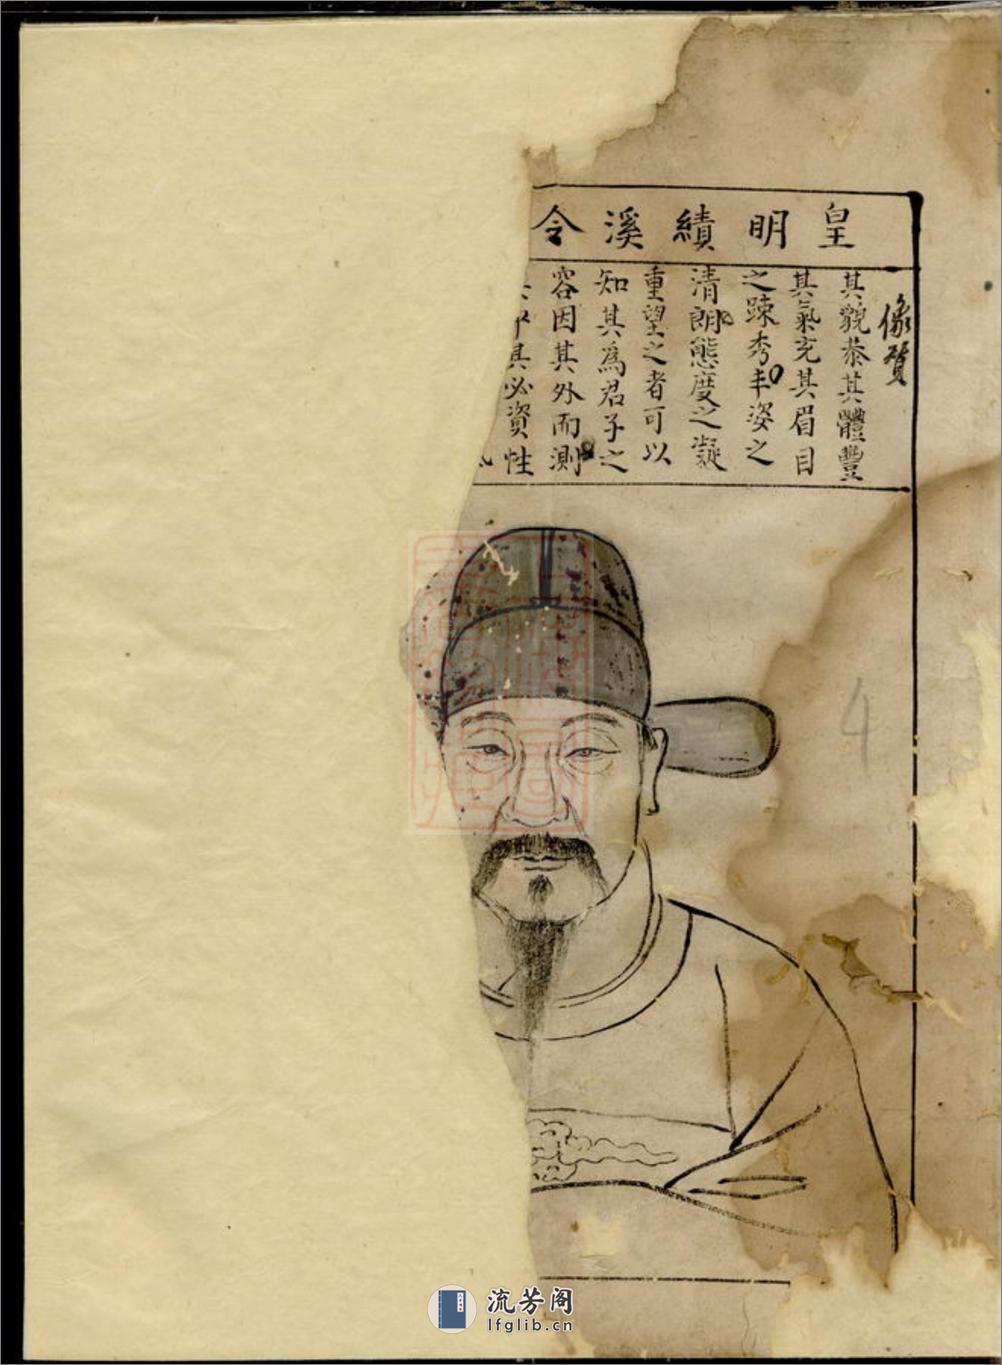 皇明績溪令
像贊
其貌恭其體豐
其氣充其眉目
之踈秀丰姿之
清朗態度之凝
重望之者可以
知其為君子之
容因其外而測
其中其必資性
4
流芳阁
lfglib.cn